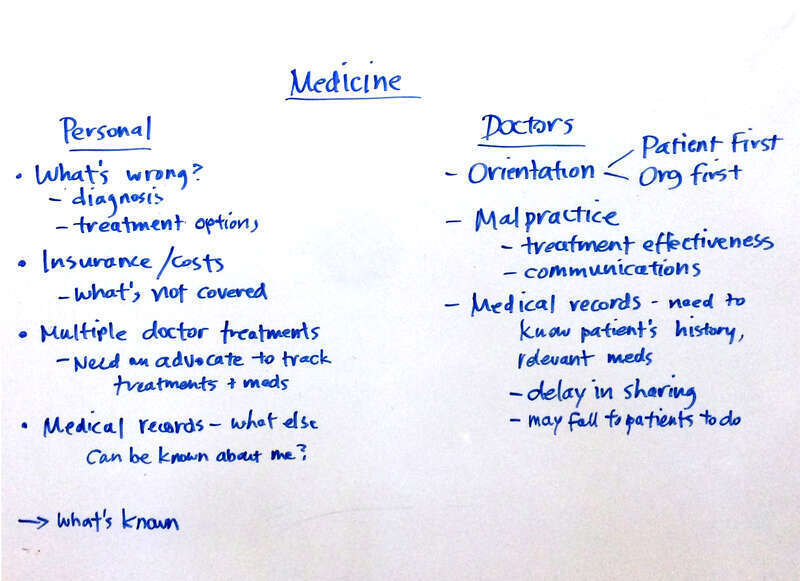 Medicine
Personal
• What's wrong?
- diagnosis
- treatment options
• Insurance/costs
- what's not covered
• Multiple doctor treatments
- Need an advocate to track
treatments + meds
• Medical records - what else
can be known about me?
→ what's known
Doctors
- Orientation < Patient First
Org first
- Malpractice
- treatment effectiveness
- communications
- Medical records - need to
know patient's history,
relevant meds
- delay in sharing
- may fall to patients to do